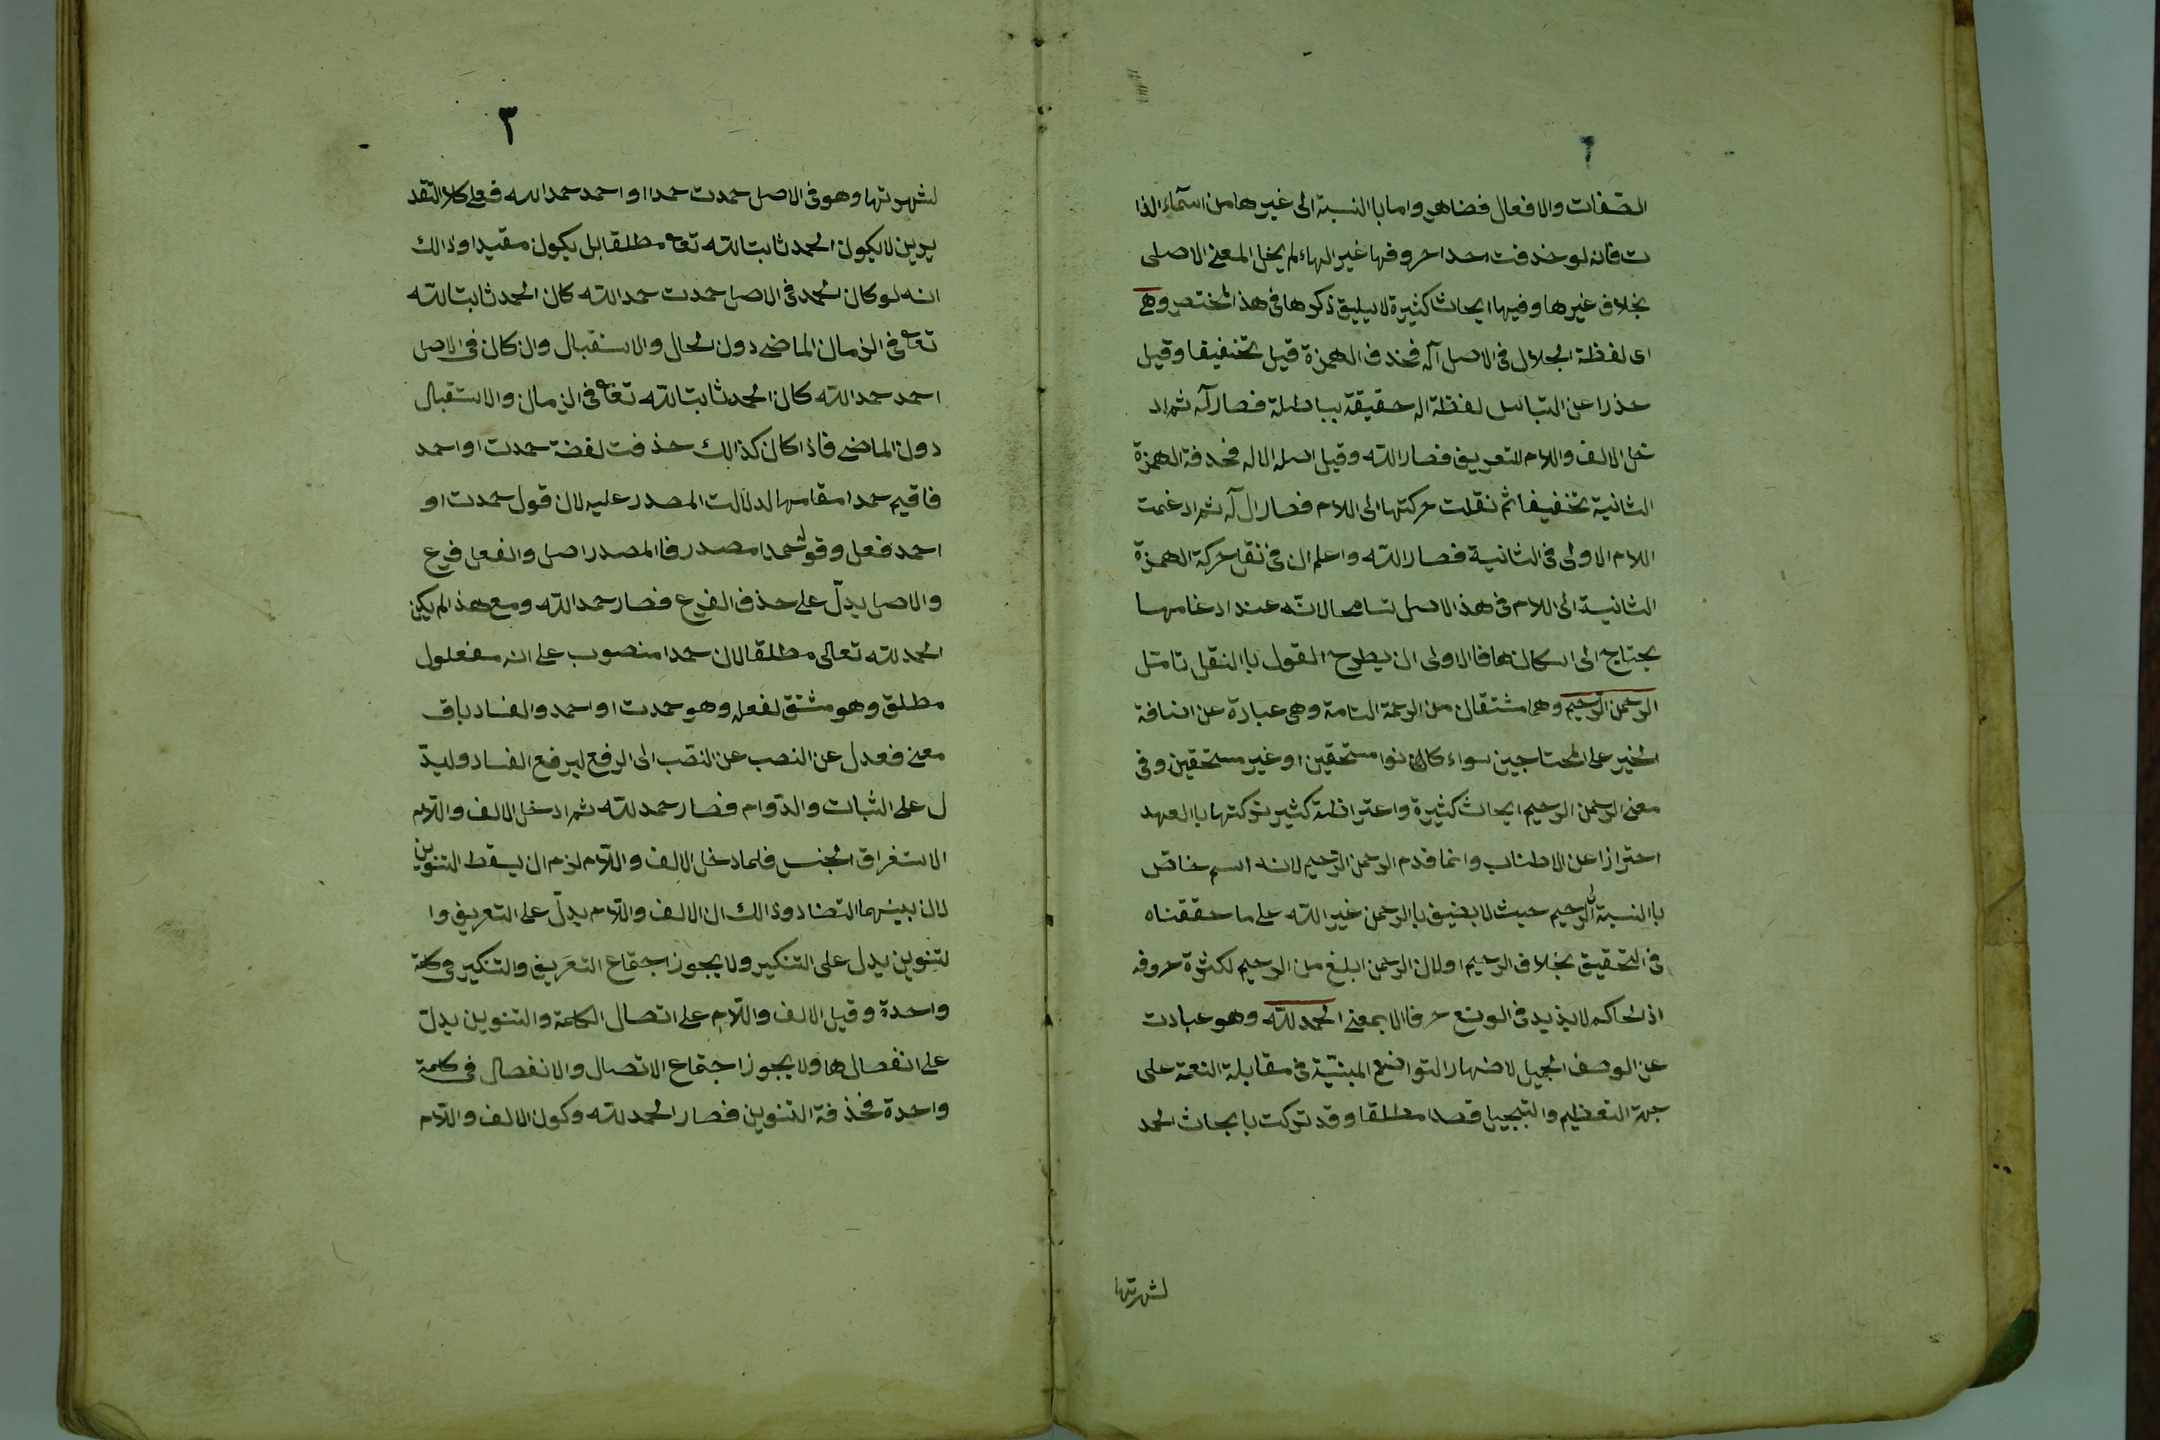 ٢
الصفات والافعال فضاهر واما باالنسبة الى غيرها من اسماء الذا
ت فانه لو خذفت احد احروفها غير الهاء لم يخل المعنى الاصلى
بخلاف غيرها وفيها ابحاث كثيرة لا يليق ذكرها فى هذ المختصر وهى
اى لفظة الجلال فى الاصل آله فحذف الهمزة قيل تخفيفا وقيل
حذرا عن التباس لفظة اله حقيقة بباطلة فصار آله ثم اد
خل الالف واللام للتعريف فصار الله وقيل اصله الاله فحدفة الهمزة
الثانية تخفيفا ثم نقلت حركتها الى اللام فصار ال له ثم ادغمت
اللام الاولى فى الثانية فصار الله واعلم ان فى نقل حركة الهمزة
الثانية الى اللام فى هذ الاصل تسامحا لانه عند ادغامها
يحتاج الى اسكانها فالاولى ان يطرح القول باالنقل تامل
الرحمن الرحيم وهما مشتقان من الرحمة التامة وهى عبادة عن اضافة
الخير على المحتاجين سواء كانوا مستحقين او غير مستحقين وفى
معنى الرحمن الرحيم ابحاث كثيرة واعتراضة كثير تركتها باالعهد
احترازا عن الاطناب وانما قدم الرحمن الرحيم لانه اسم خاص
باالنسبة الى الرحيم حيث لا يضيق باالرحمن غير الله على ما حققناه
فى التحقيق بخلاف الرحيم او لان الرحمن ابلغ من الرحيم لكثرة حروفه
اذ الحاكم لا يذيد فى الوضع حرفا الا بمعنى الحمد لله وهو عبادت
عن الوصف الجميل لاضهار التواضع المبنية فى مقابلة النعمة على
جهة التعظيم والتبجيل قصدا مطلقا وقد تركت باابحاث الحمد
لشهرتها
٣
لشهرتها وهو فى الاصل حمدت حمدا او احمد حمد الله فعلى كلا التقد
يرين لا يكون الحمد ثابتا لله تعا مطلقا بل يكون مقيدا وذالك
انه لو كان الحمد فى الاصل حمدت حمد الله كان الحمد ثابتا لله
تعا فى الزمان الماضى دون الحال والاستقبال وان كان فى الاصل
احمد حمد الله كان الحمد ثابتا لله تعا فى الزمان والاستقبال
دون الماضى فاذا كان كذالك حذفت لفضة حمدت او احمد
فاقيم حمدا مقامها لدلالت المصدر عليه لان قول حمدت او
احمد فعل وقوله حمدا مصدر فاالمصدر اصل والفعل فرع
والاصل يدل على حذف الفرع فصار حمد الله ومع هذ الم يكن
الحمد لله تعالى مطلقا لان حمدا منصوب على انه مفعلول
مطلق وهو مشتق لفعله وهو حمدت او احمد والفساد باق
معنى فعدل عن النصب عن النصب الى الرفع ليرفع الفساد وليد
ل على الثبات والدوام فصار حمد لله ثم ادخل الالف واللام
الاستغراق الجنس فلما دخل الالف واللام لزم ان يسقط التنوين
لان بينهما التضاد وذالك ان الالف واللام يدل على التعريف وا
لتنوين يدل على التنكير ولا يجوز اجتماع التعريف والتنكير فى كلمة
واحدة وقيل الالف واللام على اتصال الكلمة والتنوين يدل
على انفصالها ولا يجوز اجتماع الاتصال والانفصال فى كلمة
واحدة فخذفة التنوين فصار الحمد لله وكون الالف واللام